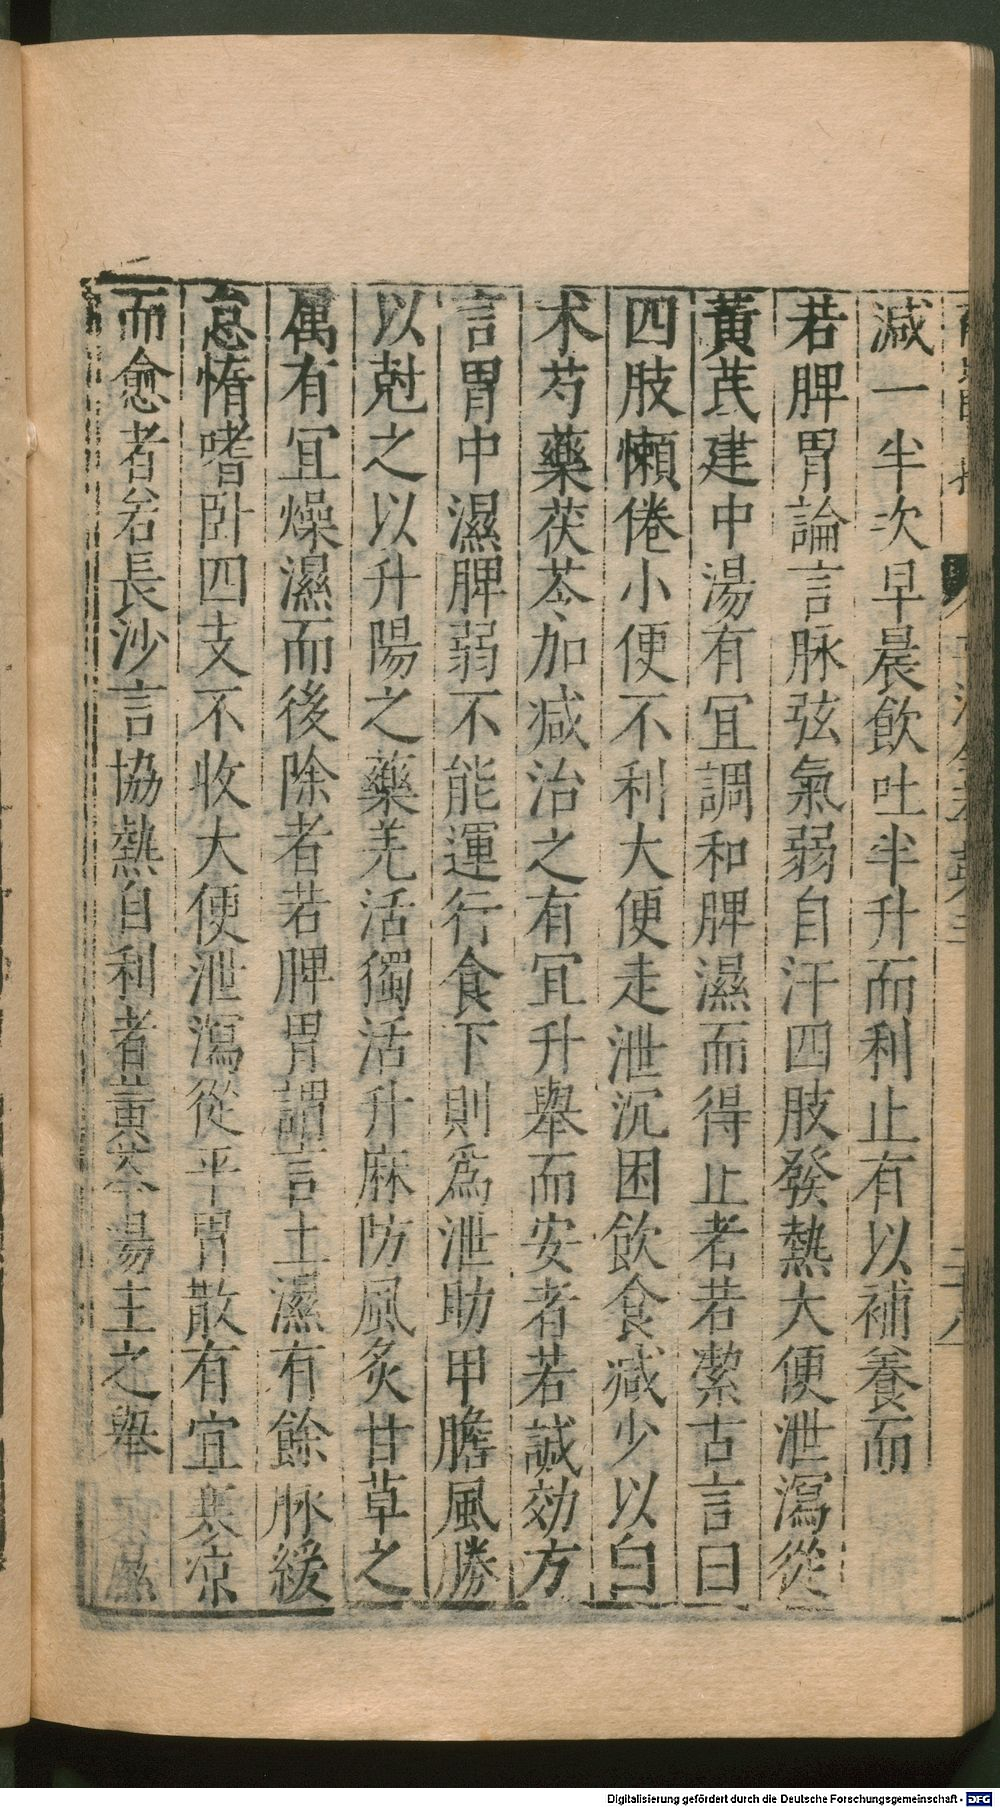 減一半次早晨飲吐半升而利止有以補養而
若脾胃論言脉弦氣弱自汗四肢發熱大便泄瀉從
黃芪建中湯有宜調和脾濕而得止者若潔古言曰
四肢懶倦小便不利大便走泄沉困飲食减少以白
术芍藥茯苓加减治之有宜升舉而安者若誠効方
言胃中濕脾弱不能運行食下則爲泄助甲膽風勝
以尅之以升陽之藥羌活獨活升麻防風炙甘草之
属有宜燥濕而後除者若脾胃謂言土濕有餘脉緩
怠惰嗜卧四支不收大便泄瀉從平胃散有宜寒凉
而愈者若長沙言協熱自利者黃芩湯主之舉
Digitalisierung gefördert durch die Deutsche Forschungsgemeinschaft - DFG